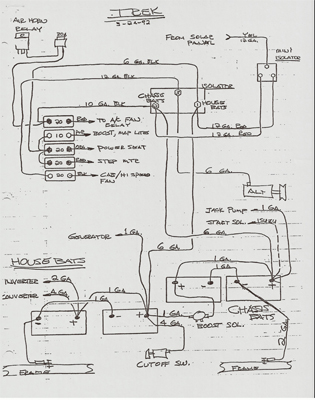 TREK
3-24-92
AIR HORN
RELAY
FROM SOLAR
PANEL
YEL
12 GA.
MINI
ISOLATOR
6 GA. BLK
12 GA. BLK
ISOLATOR
CHASS
BATS
HOUSE
BATS
10 GA. BLK
20
RED
TO A/C FAN
RELAY
10
BOOST, MAP LITE
20
POWER SEAT
20
STEP MTR.
20
CAB/HI SPEED
FAN
12 GA. RED
12 GA. RED
6 GA.
ALT
JACK PUMP
1 GA.
START SOL.
GENERATOR
1 GA.
6 GA.
6 GA.
HOUSE BATS
INVERTER
2 GA.
CONVERTER
4 GA.
1 GA.
1 GA.
1 GA.
1 GA.
4 GA.
BOOST SOL.
CHASSIS
BATS
CUTOFF SW.
FRAME
FRAME